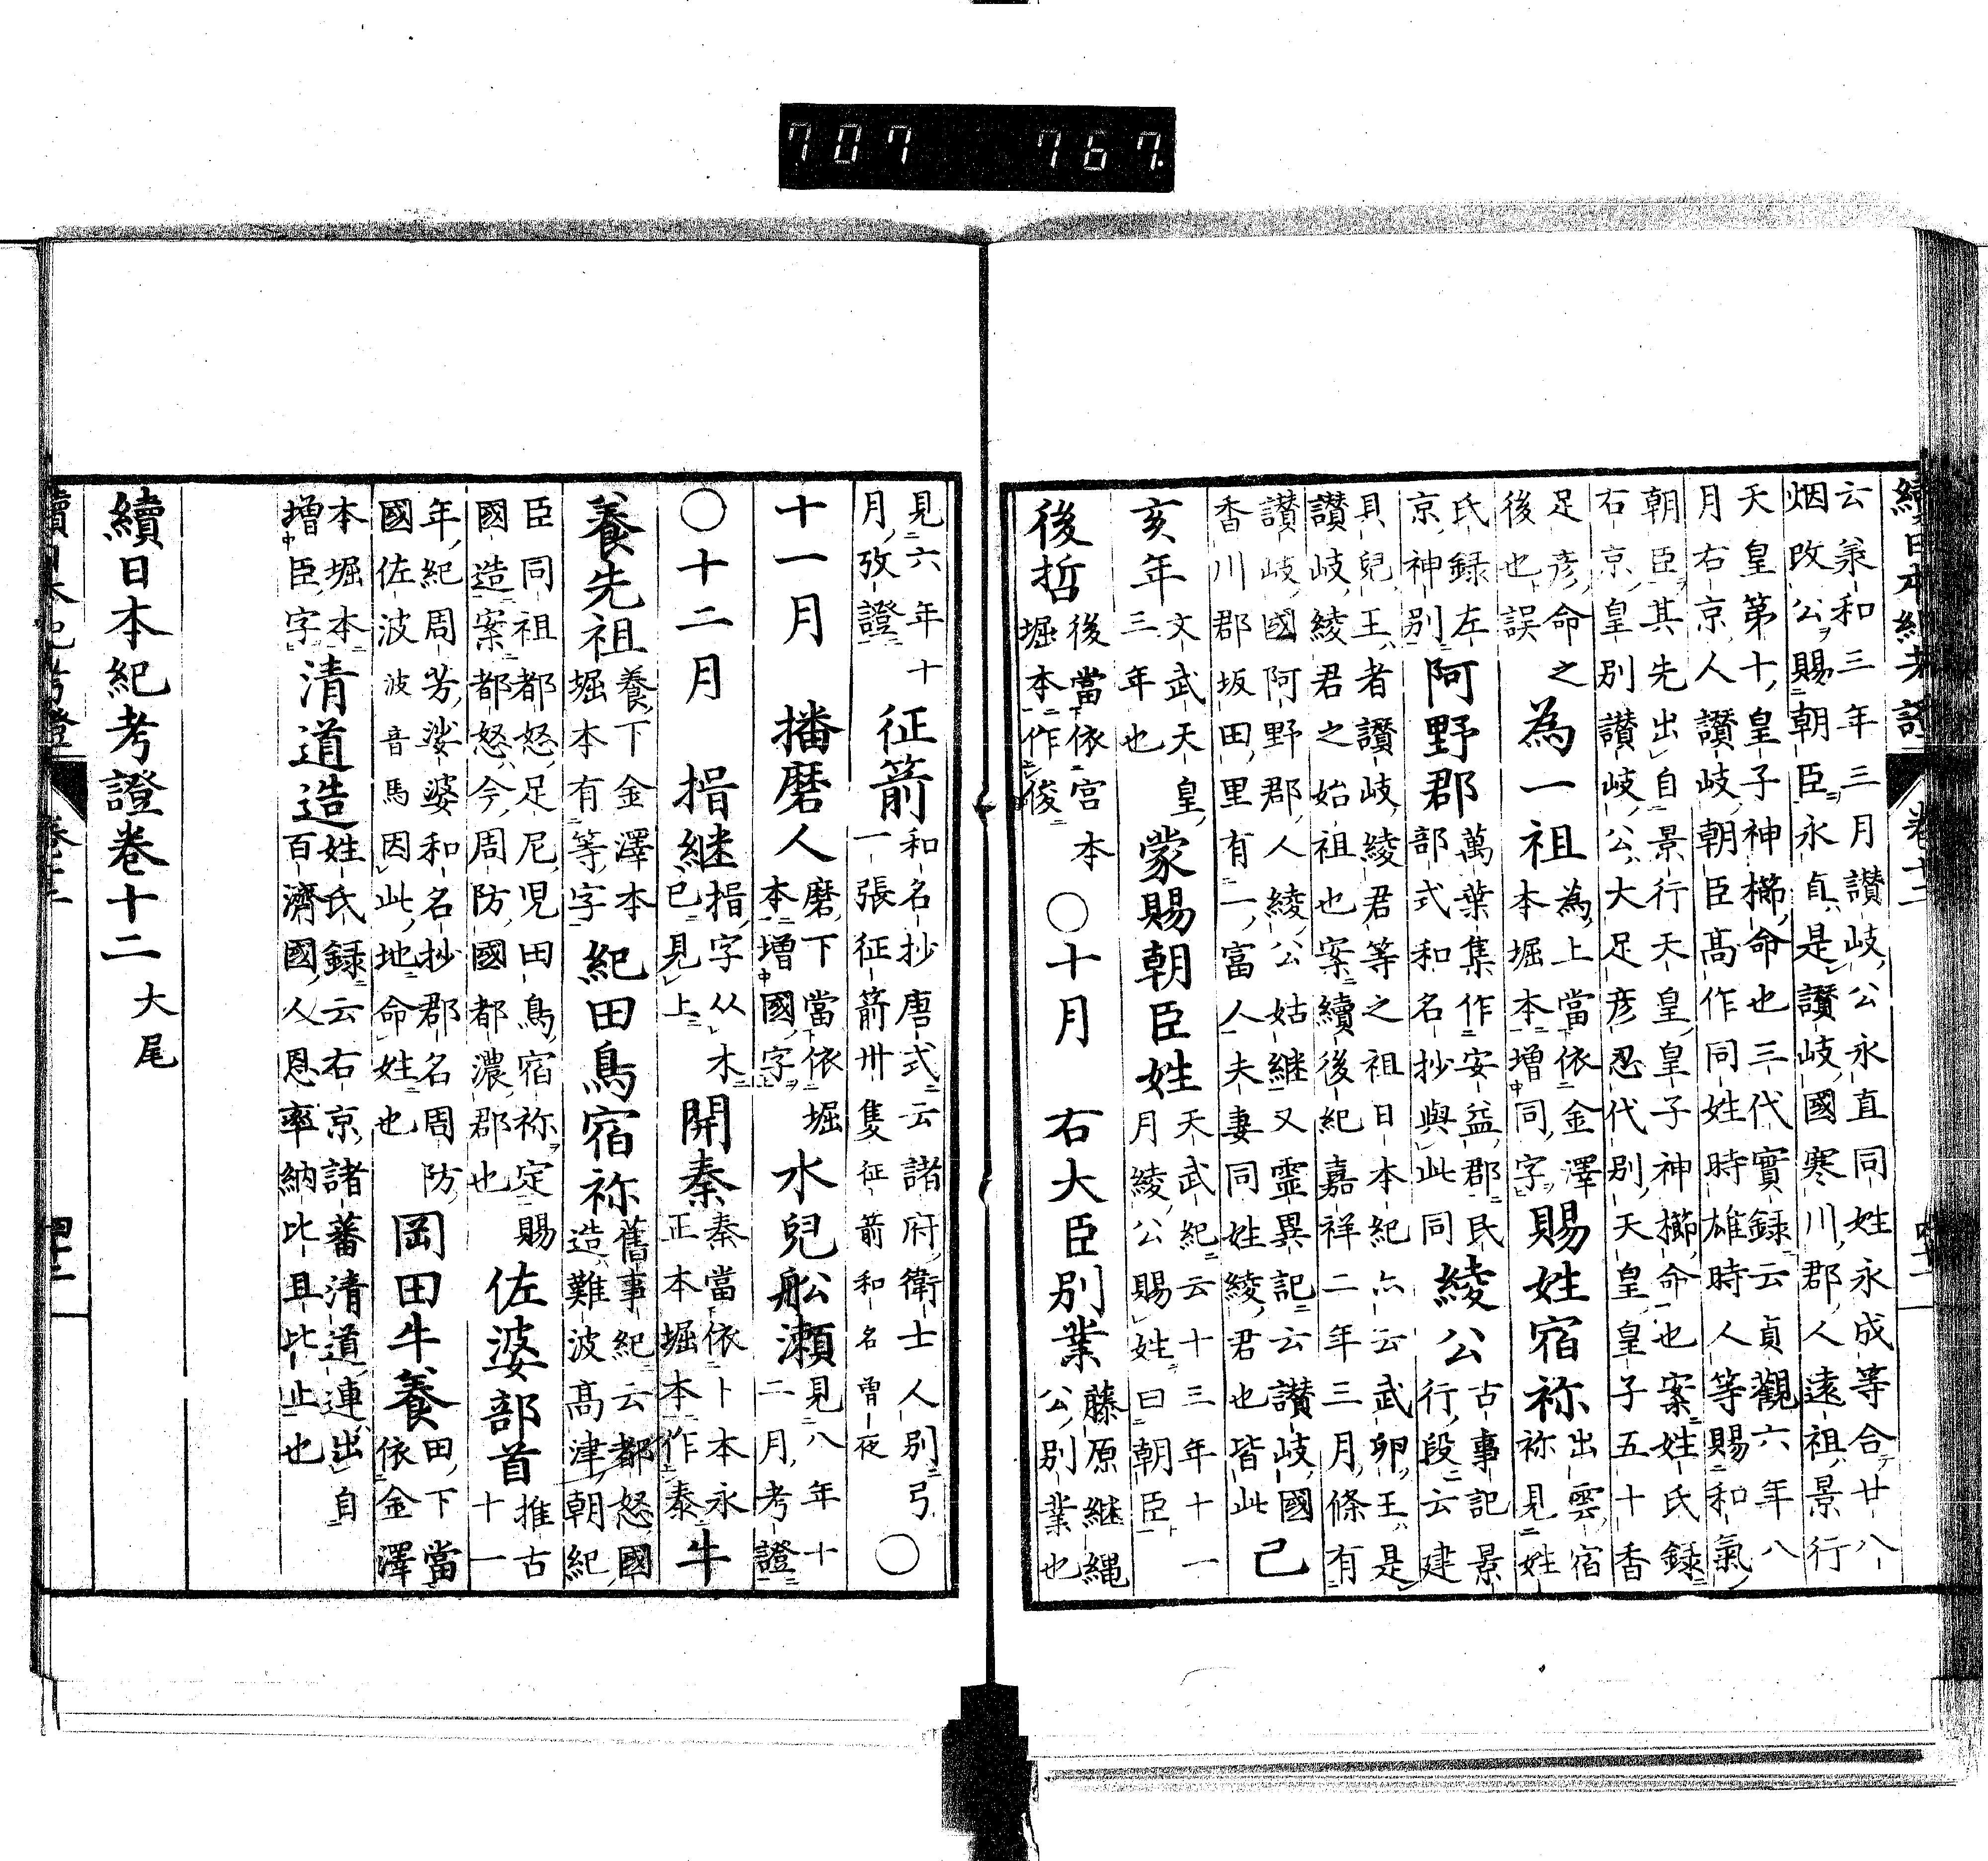 707 767
續日本紀考證 卷十二
云羕和三年三月讃岐公永直同姓永成等合廿八
烟改公賜朝臣永貞是讃岐國寒川郡人遠祖景行
天皇第十皇子神櫛命也三代實録云貞觀六年八
月右京人讃岐朝臣髙作同姓時雄時人等賜和氣
朝臣其先出自景行天皇皇子神櫛命也案姓氏録
右京皇別讃岐公大足彦忍代別天皇皇子五十香
足彦命之
後也誤
為一祖
為上當依金澤
本堀本増同字
賜姓宿祢
出雲宿
祢見姓
氏録左
京神別
阿野郡
萬葉集作安益郡民
部式和名抄與此同
綾公
古事記景
行段云建
貝兒王者讃岐綾君等之祖日本紀六云武卵王是
讃岐綾君之始祖也案續後紀嘉祥二年三月條有
讃岐國阿野郡人綾公姑継又霊異記云讃岐國
香川郡坂田里有一富人夫妻同姓綾君也皆此
己
亥年
文武天皇
三年也
蒙賜朝臣姓
天武紀云十三年十一
月綾公賜姓曰朝臣
後哲
後當依宮本
堀本作俊
○十月　右大臣別業
藤原継縄
公別業也
見六年十
月攷證
征箭
和名抄唐式云諸府衛士人別弓
一張征箭卅隻征箭和名曽夜
○
十一月　播磨人
磨下當依堀
本増國字
水兒舩瀬
見八年十
二月考證
○十二月　揟継
揟字从木
已見上
開秦
秦當依卜本永
正本堀本作泰
牛
養先祖
養下金澤本
堀本有等字
紀田鳥宿祢
舊事紀云都怒國
造難波髙津朝紀
臣同祖都怒足尼児田鳥宿祢定賜
國造案都怒今周防國都濃郡也
佐婆部首
推古
十一
年紀周芳娑婆和名抄郡名周防
國佐波波音馬因此地命姓也
岡田牛養
田下當
依金澤
本堀本
増臣字
清道造
姓氏録云右京諸蕃清道連出自
百濟國人恩率納比旦比止也
續日本紀考證卷十二　大尾
續日本紀考證 卷十二